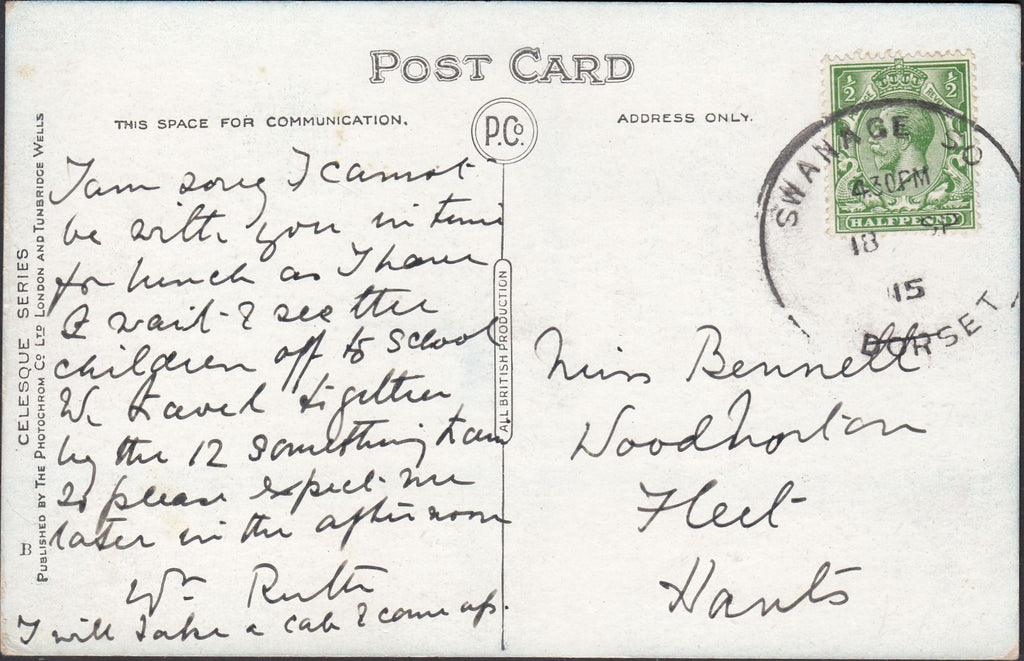 POST CARD
THIS SPACE FOR COMMUNICATION.
P.Co.
ADDRESS ONLY.
½ ½
HALFPENNY
SWANAGE S.O
4.30PM
18 SP
15
DORSET
CELESQUE SERIES
PUBLISHED BY THE PHOTOCHROM CO LTD LONDON AND TUNBRIDGE WELLS
B
ALL BRITISH PRODUCTION
I am sorry I cannot
be with you in time
for lunch as I have
to wait & see the
children off to School
We travel together
by the 12 something train
So please expect me
later in the afternoon
Ruth
I will take a cab & come up.
Miss Bennett
Woodnorton
Fleet
Hants